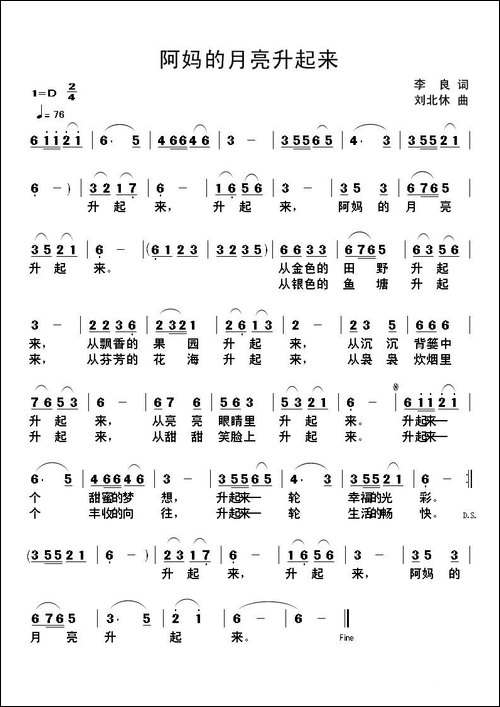 阿妈的月亮升起来
李 良 词
1=D 2/4
刘北休 曲
♩=76
6 1 1 2 1 | 6· 5 | 4 6 6 4 6 | 3 - | 3 5 5 6 5 | 4· 3 | 3 5 5 2 1 |
6 - ) | 3 2 1 7 | 6 - | 1 6 5 6 | 3 - | 3 5 3 | 6 7 6 5 |
升 起 来， 升 起 来， 阿妈 的 月 亮
3 5 2 1 | 6 - | ( 6 1 2 3 | 3 2 3 5 ) | 6 7 6 5 | 6 3 5 6 |
升 起 来。 从金色的 田 野 升 起
从银色的 鱼 塘 升 起
3 - | 2 2 3 6 | 2 3 2 1 | 2 6 1 3 | 2 - | 3 5 2 3 | 6 6 6 |
来， 从飘香的 果 园 升 起 来， 从沉 沉 背篓中
来， 从芬芳的 花 海 升 起 来， 从袅 袅 炊烟里
7 6 5 3 | 6 - | 6 7 6 | 5 6 3 | 2 3 5 6 | 6 - | 6 1 1 2 1 |
升 起 来， 从亮 亮 眼睛里 升 起 来。 升起来一
升 起 来， 从甜 甜 笑脸上 升 起 来。 升起来一
6· 5 | 4 6 6 4 6 | 3 - | 3 5 5 6 5 | 4· 3 | 3 5 5 2 1 | 6 - :|
个 甜蜜的梦 想， 升起来一 轮 幸福的光 彩。
个 丰收的向 往， 升起来一 轮 生活的畅 快。 D.S.
( 3 5 5 2 1 | 6 - ) | 2 3 1 7 | 6 - | 1 6 5 6 | 3 - | 3 5 3 |
升 起 来， 升 起 来， 阿妈 的
6 7 6 5 | 3· 6 | 3· 5 | 2 1 | 6 - | 6 - ||
月 亮 升 起 来。 Fine